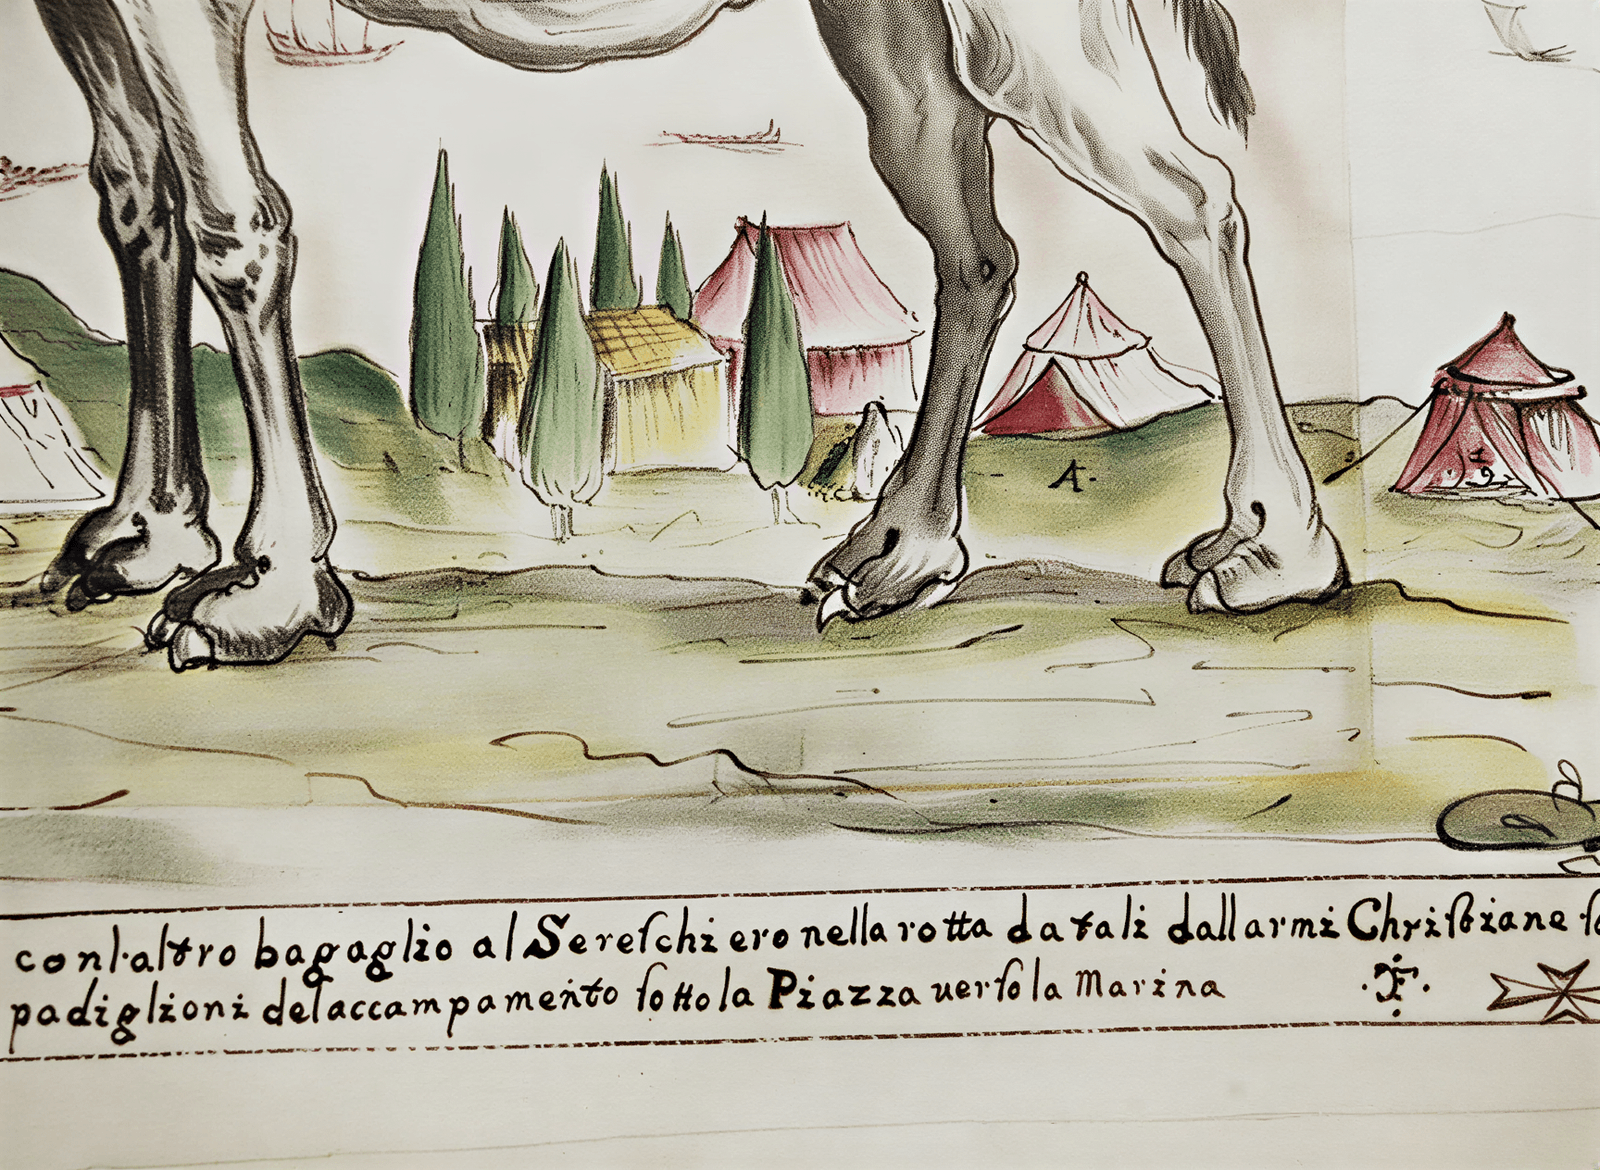 A.
conl'altro bagaglio al Sereſchiero nella rotta datali dall armi Chriſtiane
padiglioni delaccampamento ſotto la Piazza uerſo la Marina .F.